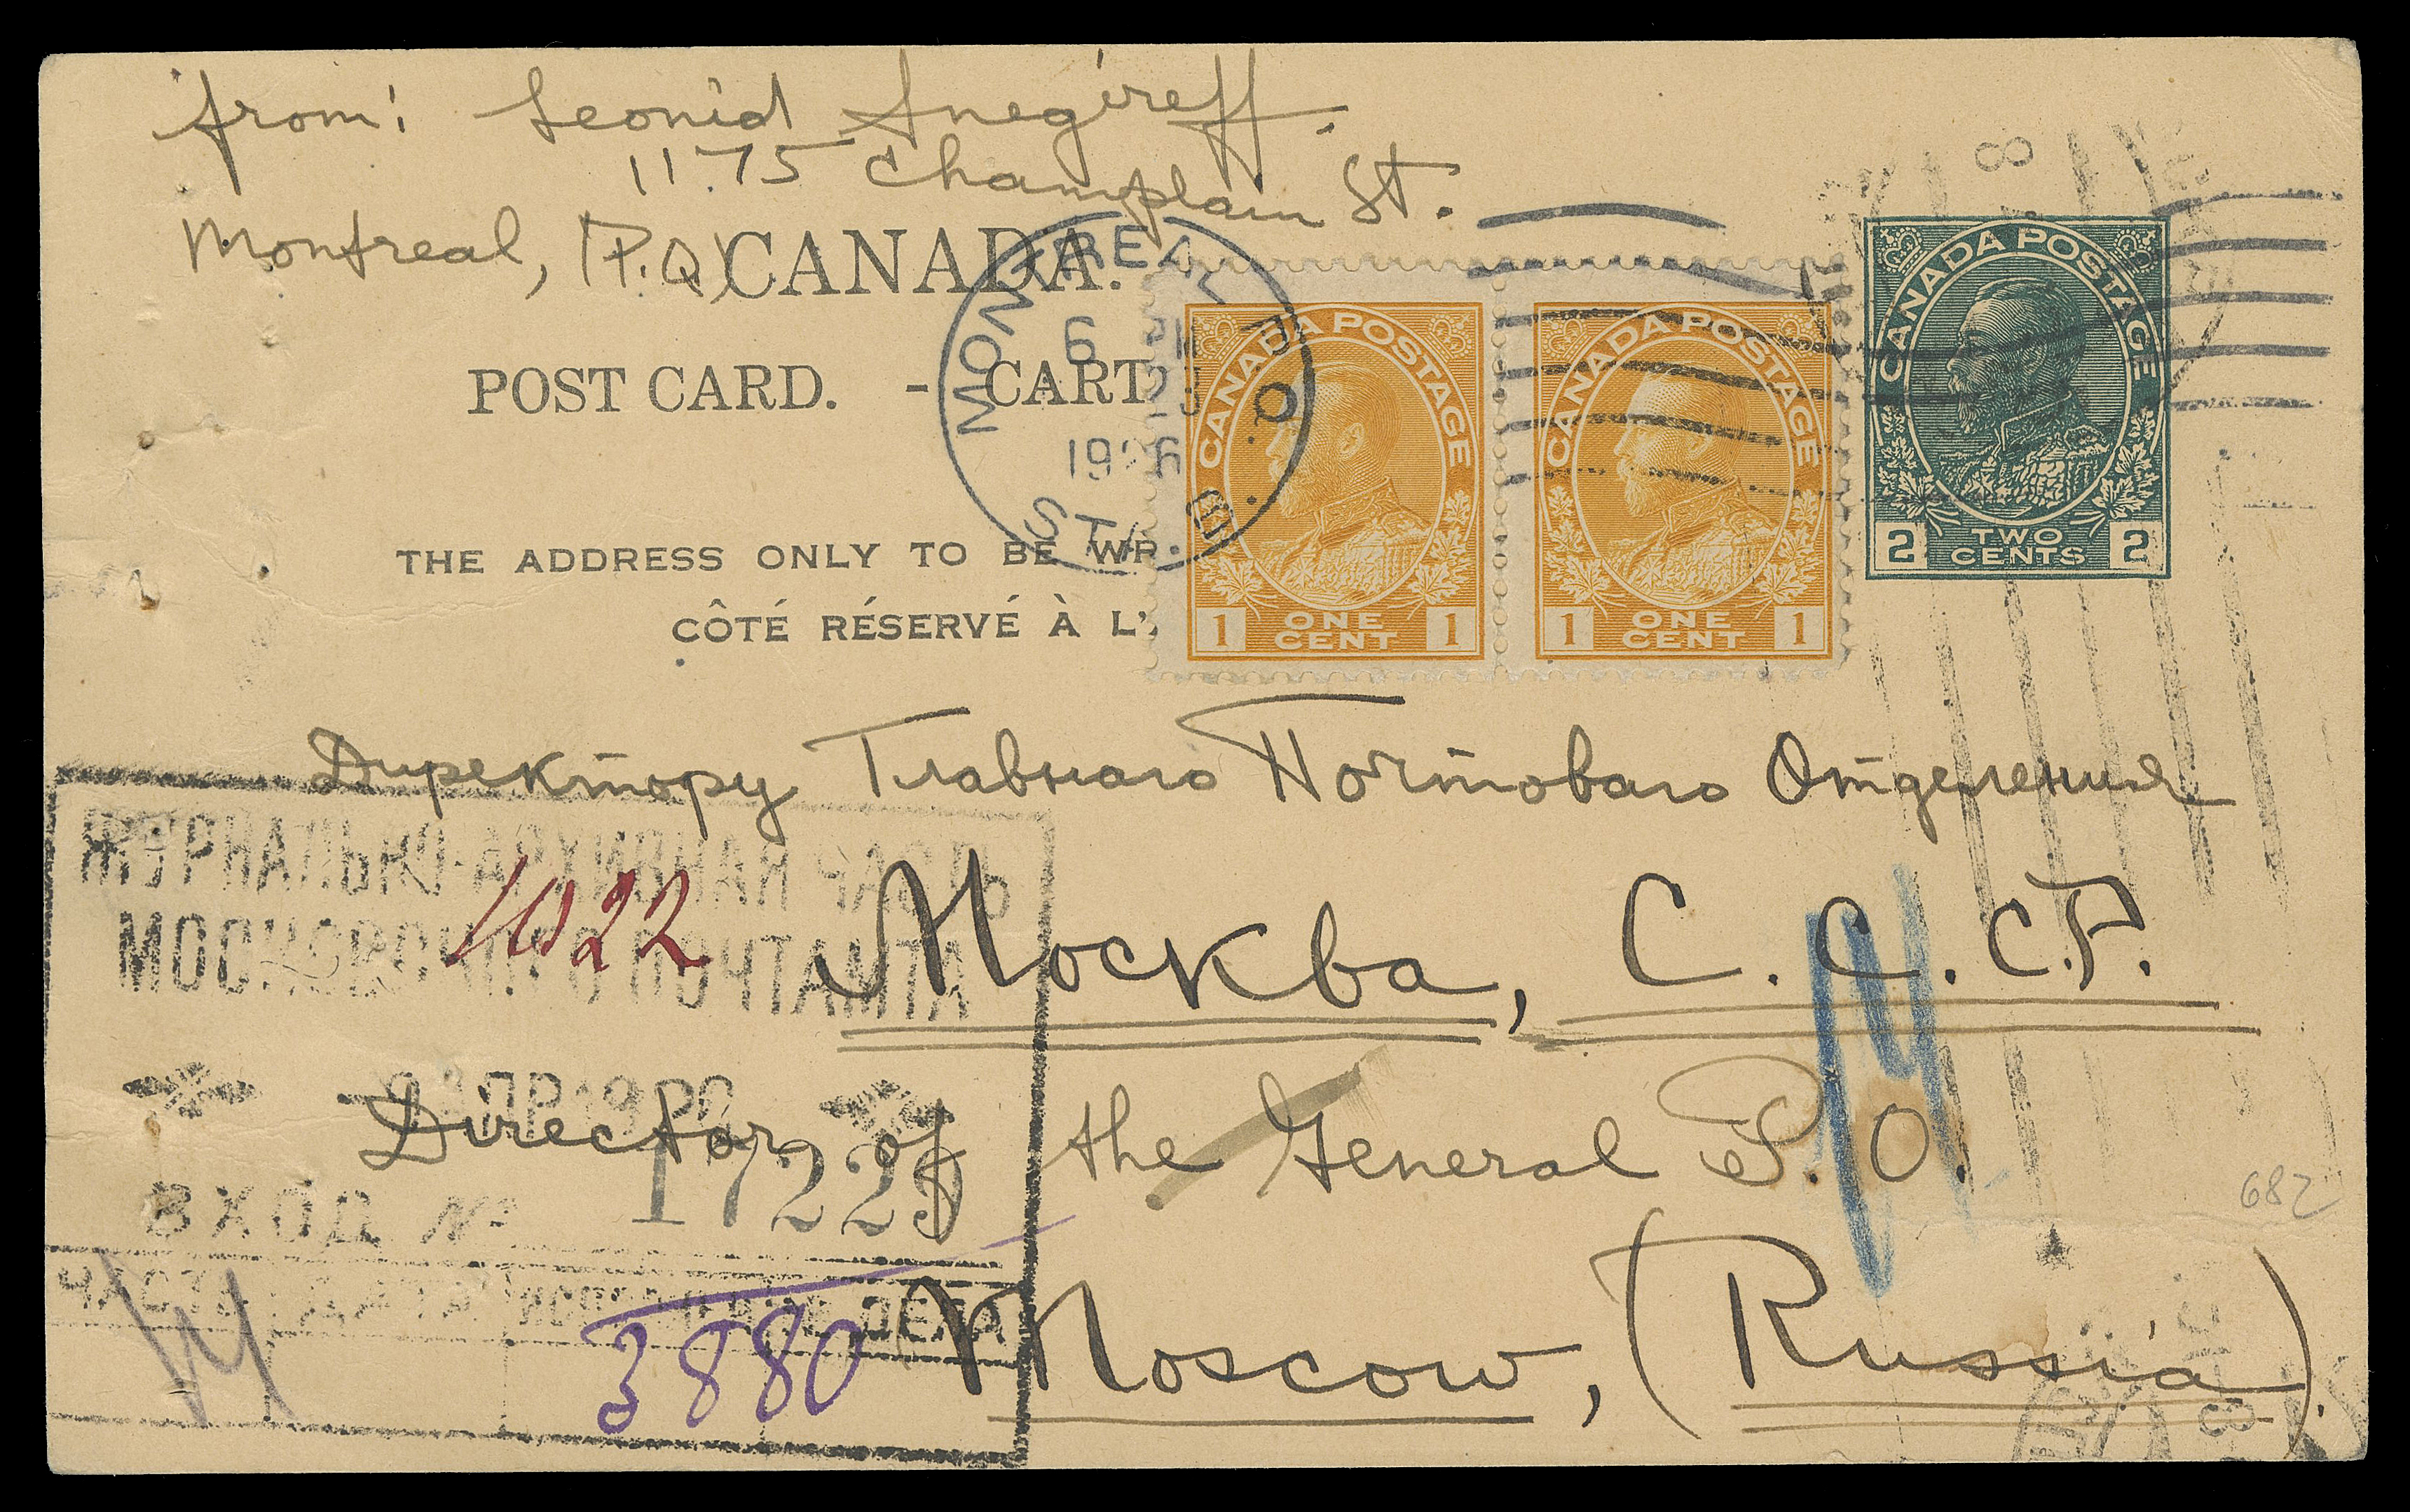 from: Leonid Snegireff.
1175 Champlain St.
Montreal, (P.Q)
CANADA.
POST CARD. - CART
THE ADDRESS ONLY TO BE WR
CÔTÉ RÉSERVÉ À L'
MONTREAL P.Q.
6 PM
23
1926
STA. B
CANADA POSTAGE
1 ONE CENT 1
CANADA POSTAGE
1 ONE CENT 1
CANADA POSTAGE
2 TWO CENTS 2
Директору Главнаго Почтоваго Отделения
Москва, С.С.С.Р.
Director of the General P.O.
Moscow, (Russia).
ЖУРНАЛЬНО-АРХИВНАЯ ЧАСТЬ
МОСКОВСКОГО ПОЧТАМТА
1022
ВХОД №
17229
ЧАСТЬ ДАТА ИСПОЛНЕНИЕ ДЕЛА
3880
682